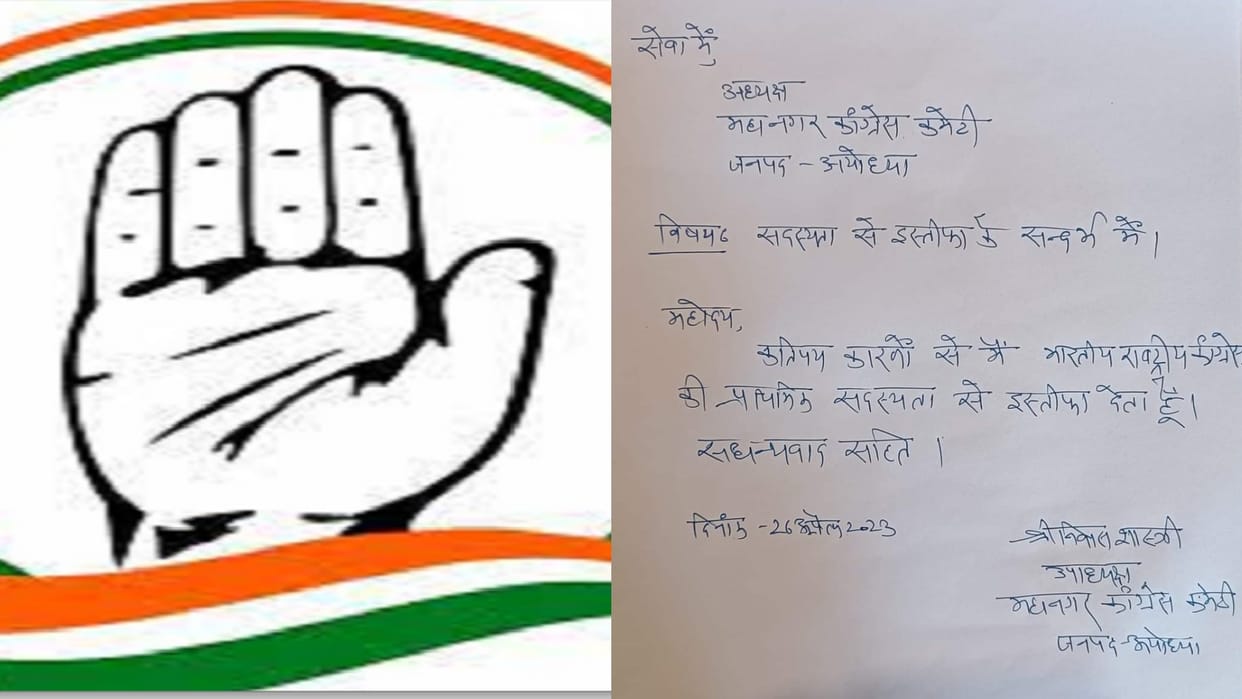 सेवा में
अध्यक्ष
महानगर कांग्रेस कमेटी
जनपद - अयोध्या
विषयः सदस्यता से इस्तीफा के सन्दर्भ में।
महोदय,
कतिपय कारणों से मैं भारतीय राष्ट्रीय कांग्रेस
की प्राथमिक सदस्यता से इस्तीफा देता हूँ।
सधन्यवाद सहित।
दिनांक - 26 अप्रैल 2023
श्रीनिवास शास्त्री
उपाध्यक्ष
महानगर कांग्रेस कमेटी
जनपद - अयोध्या